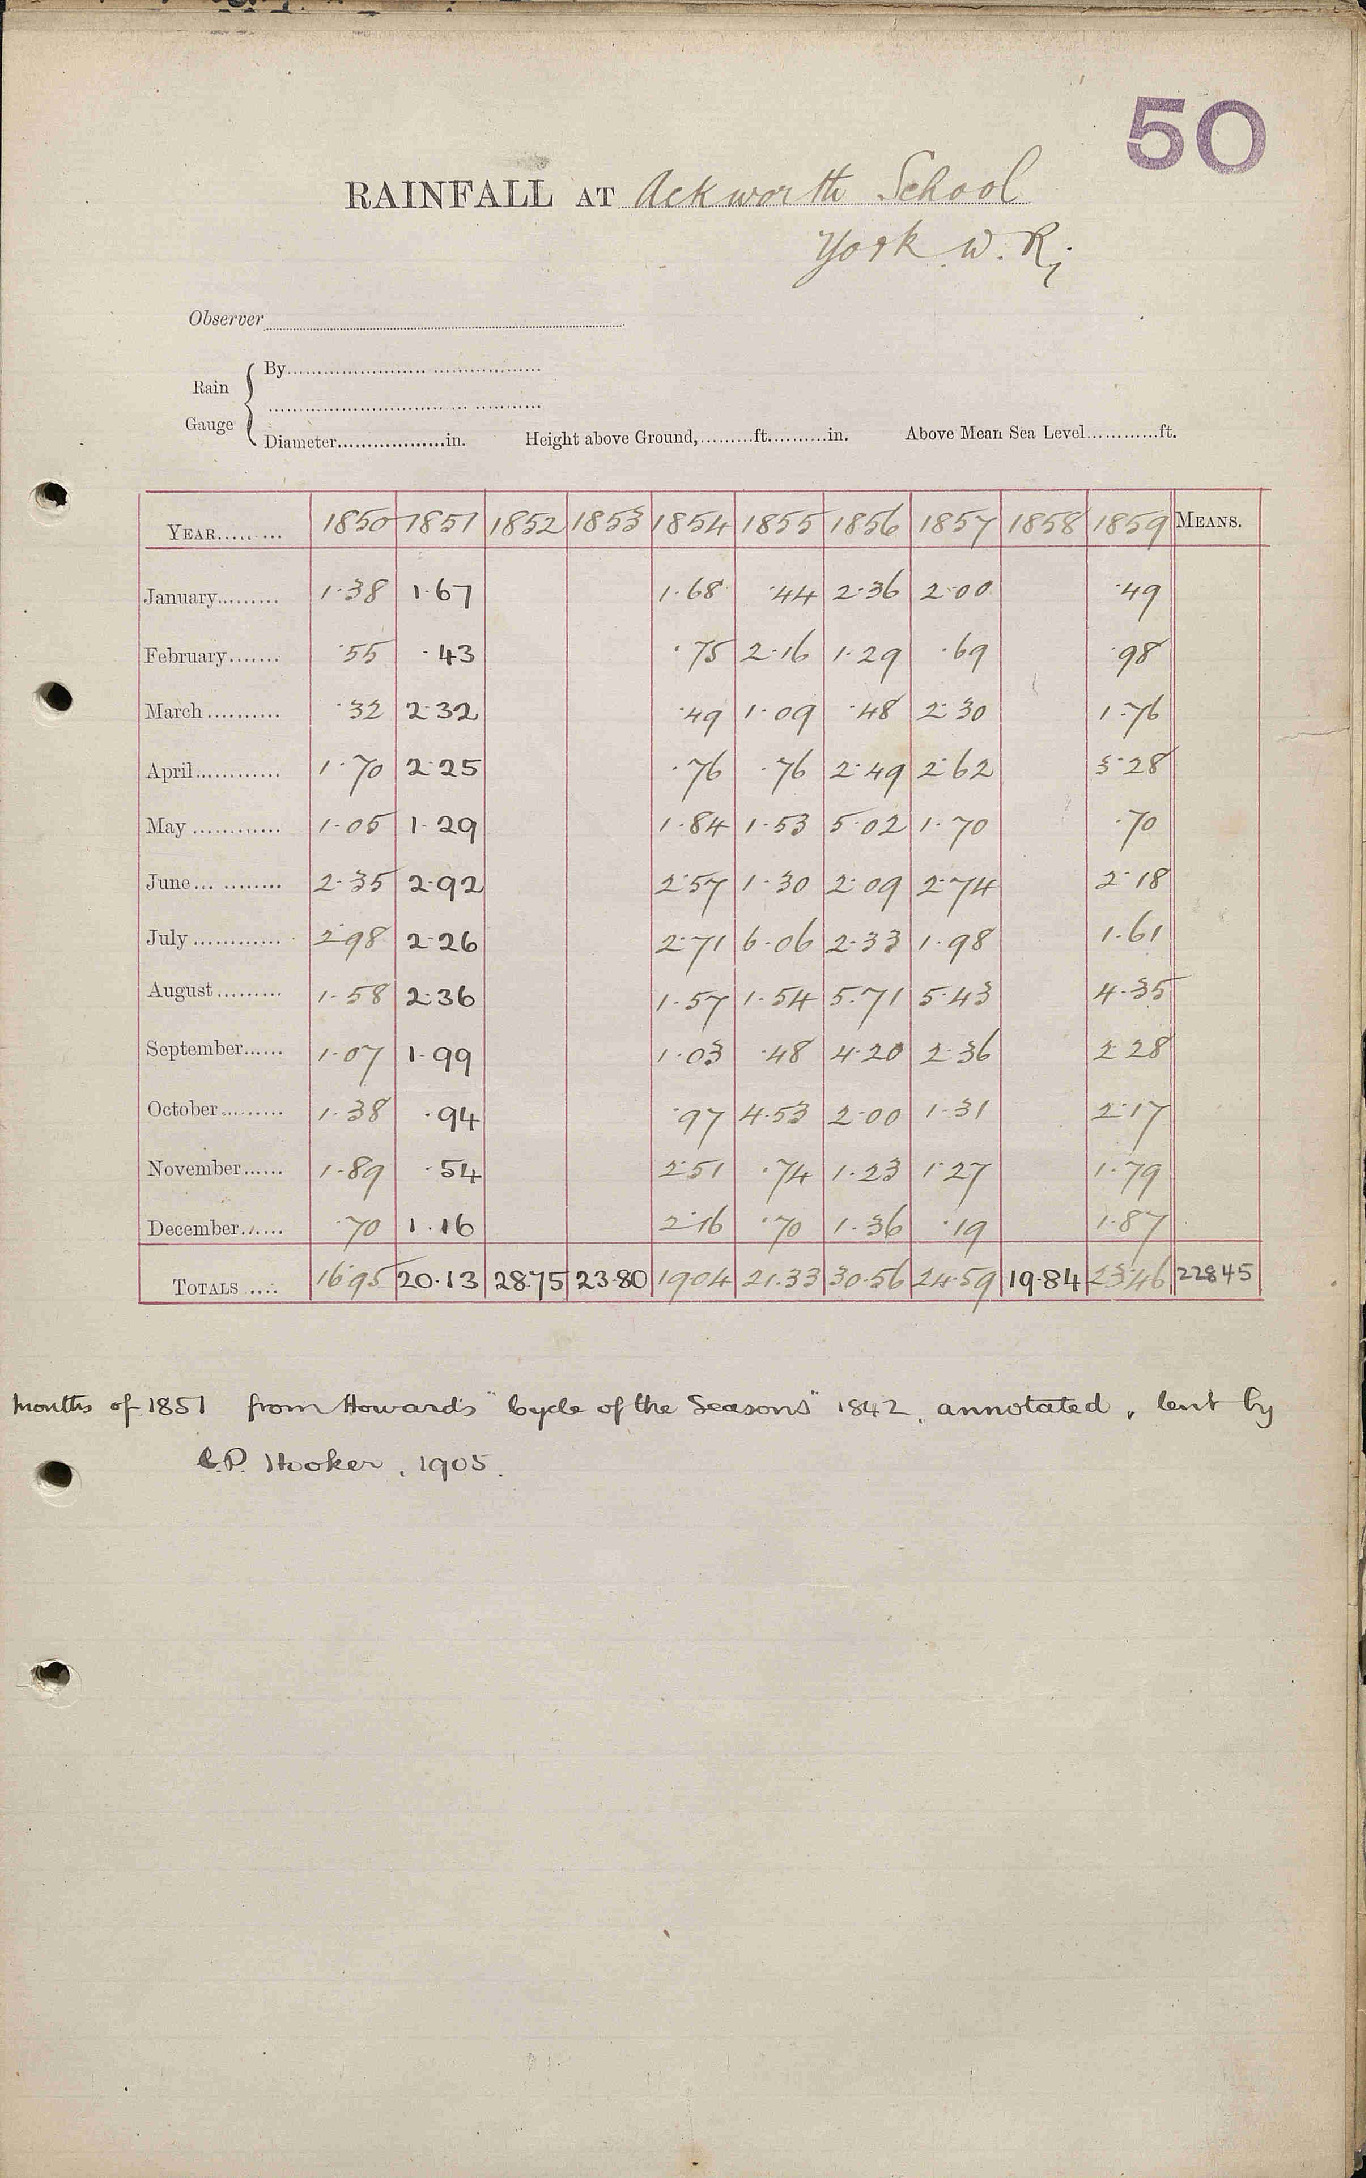 50
RAINFALL AT Ackworth School
York W. R.
Observer
Rain Gauge { By
Diameter in. Height above Ground, ft. in. Above Mean Sea Level ft.
YEAR 1850 1851 1852 1853 1854 1855 1856 1857 1858 1859 MEANS.
January 1.38 1.67 1.68 .44 2.36 2.00 .49
February .55 .43 .75 2.16 1.29 .69 .98
March .32 2.32 .49 1.09 .48 2.30 1.76
April 1.70 2.25 .76 .76 2.49 2.62 3.28
May 1.05 1.29 1.84 1.53 5.02 1.70 .70
June 2.35 2.92 2.57 1.30 2.09 2.74 2.18
July 2.98 2.26 2.71 6.06 2.33 1.98 1.61
August 1.58 2.36 1.57 1.54 5.71 5.43 4.35
September 1.07 1.99 1.03 .48 4.20 2.36 2.28
October 1.38 .94 .97 4.53 2.00 1.31 2.17
November 1.89 .54 2.51 .74 1.23 1.27 1.79
December .70 1.16 2.16 .70 1.36 .19 1.87
TOTALS 16.95 20.13 28.75 23.80 19.04 21.33 30.56 24.59 19.84 23.46 228.45
Months of 1851 from Howard's "Cycle of the Seasons" 1842, annotated, lent by
C.P. Hooker, 1905.